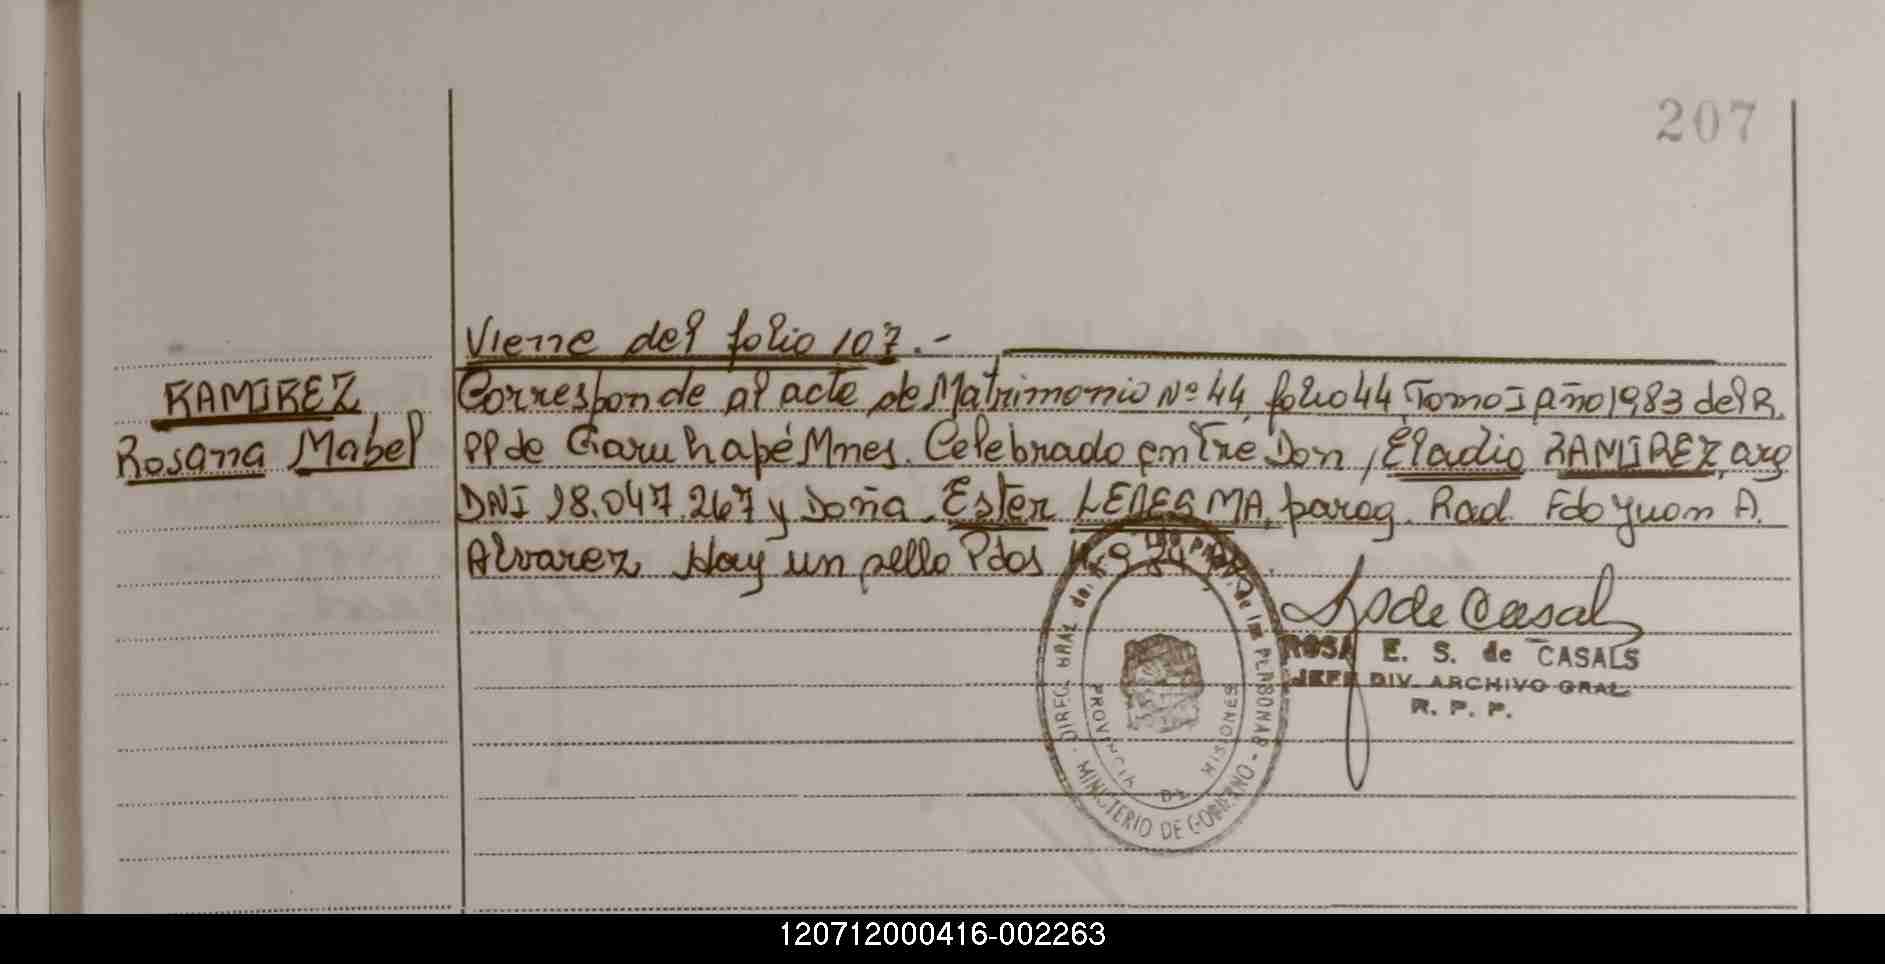 207
Viene del folio 107.-
RAMIREZ
Rosana Mabel
Corresponde al acte de Matrimonio Nº 44 folio 44 Tomo I año 1983 del R.
PP de Garuhapé Mnes. Celebrado entre Don, Eladio RAMIREZ, arg
DNI 18.047.267 y Doña Ester LEDESMA, parag. Rad. Fdo Juan A.
Alvarez Hay un sello Pdos
ROSA E. S. de CASALS
JEFE DIV. ARCHIVO GRAL.
R. P. P.
DIREC. GRAL. de las PERSONAS - MINISTERIO DE GOBIERNO
PROVINCIA DE MISIONES
120712000416-002263